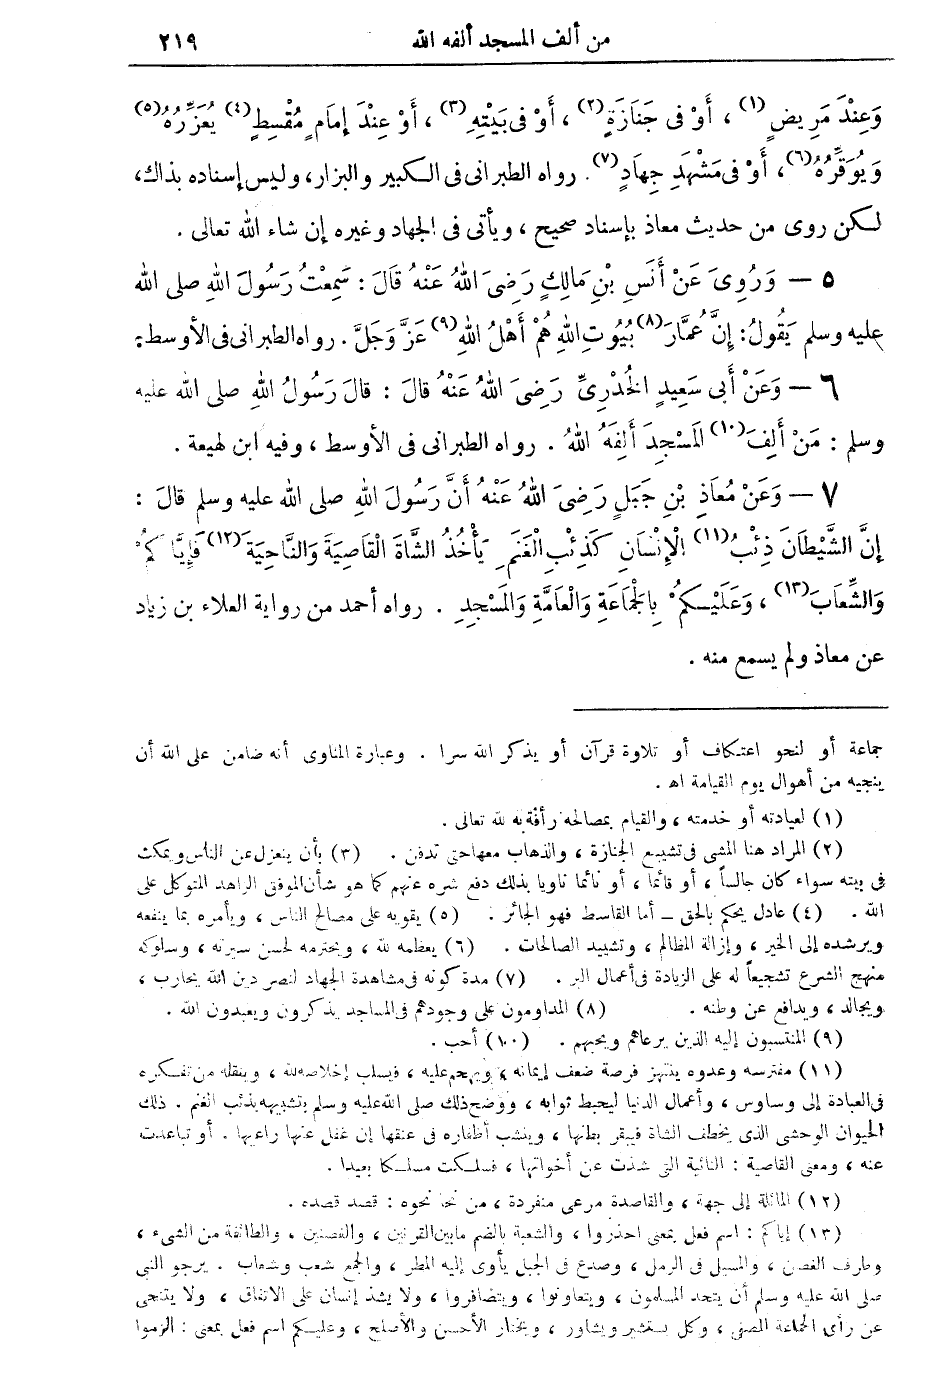 من ألف المسجد ألفه الله ٢١٩
وَعِنْدَ مَرِيضٍ(١) ، أَوْ فى جَنَازَةٍ(٢) ، أَوْ فى بَيْتِهِ(٣) ، أَوْ عِنْدَ إِمَامٍ مُقْسِطٍ(٤) يُعَزِّرُهُ(٥)
وَيُوَقِّرُهُ(٦) ، أَوْ فى مَشْهَدِ جِهَادٍ(٧) . رواه الطبرانى فى الكبير والبزار، وليس إسناده بذاك،
لكن روى من حديث معاذ بإسناد صحيح ، ويأتى فى الجهاد وغيره إن شاء الله تعالى .
٥ — وَرُوِىَ عَنْ أَنَسِ بْنِ مَالِكٍ رَضِىَ اللهُ عَنْهُ قَالَ : سَمِعْتُ رَسُولَ اللهِ صلى الله
عليه وسلم يَقُولُ: إِنَّ عُمَّارَ(٨) بُيُوتِ اللهِ هُمْ أَهْلُ اللهِ(٩) عَزَّ وَجَلَّ . رواه الطبرانى فى الأوسط:
٦ — وَعَنْ أَبى سَعِيدٍ الْخُدْرِىِّ رَضِىَ اللهُ عَنْهُ قَالَ : قَالَ رَسُولُ اللهِ صلى الله عليه
وسلم : مَنْ أَلِفَ(١٠) الْمَسْجِدَ أَلِفَهُ اللهُ . رواه الطبرانى فى الأوسط ، وفيه ابن لهيعة .
٧ — وَعَنْ مُعَاذِ بْنِ جَبَلٍ رَضِىَ اللهُ عَنْهُ أَنَّ رَسُولَ اللهِ صلى الله عليه وسلم قَالَ :
إِنَّ الشَّيْطَانَ ذِئْبُ(١١) الْإِنْسَانِ كَذِئْبِ الْغَنَمِ يَأْخُذُ الشَّاةَ الْقَاصِيَةَ وَالنَّاحِيَةَ(١٢) فَإِيَّاكُمْ
وَالشِّعَابَ(١٣) ، وَعَلَيْكُمْ بِالْجَمَاعَةِ وَالْعَامَّةِ وَالْمَسْجِدِ . رواه أحمد من رواية العلاء بن زياد
عن معاذ ولم يسمع منه .
جماعة أو لنحو اعتكاف أو تلاوة قرآن أو يذكر الله سرا . وعبارة المناوى أنه ضامن على الله أن
ينجيه من أهوال يوم القيامة اه .
(١) لعيادته أو خدمته ، والقيام بمصالحه رأفة به لله تعالى .
(٢) المراد هنا المشى فى تشييع الجنازة ، والذهاب معها حتى تدفن . (٣) بأن ينعزل عن الناس ويمكث
فى بيته سواء كان جالساً ، أو قائما ، أو نائما ناويا بذلك دفع شره عنهم كما هو شأن الموفق الزاهد المتوكل على
الله . (٤) عادل يحكم بالحق — أما القاسط فهو الجائر . (٥) يقويه على مصالح الناس ، ويأمره بما ينفعه
ويرشده إلى الخير ، وإزالة المظالم ، وتشييد الصالحات . (٦) يعظمه لله ، ويحترمه لحسن سيرته ، وسلوكه
منهج الشرع تشجيعاً له على الزيادة فى أعمال البر . (٧) مدة كونه فى مشاهدة الجهاد لنصر دين الله يحارب ،
ويجالد ، ويدافع عن وطنه . (٨) المداومون على وجودهم فى المساجد يذكرون ويعبدون الله .
(٩) المنتسبون إليه الذين يرعاهم ويحبهم . (١٠) أحب .
(١١) مفترسه وعدوه ينتهز فرصة ضعف إيمانه ، ويهجم عليه ، فيسلب إخلاصه لله ، وينقله من تفكره
فى العبادة إلى وساوس ، وأعمال الدنيا ليحبط ثوابه ، ووضح ذلك صلى الله عليه وسلم بتشبيهه بذئب الغنم . ذلك
الحيوان الوحشى الذى يخطف الشاة فيبقر بطنها ، وينشب أظفاره فى عنقها إن غفل عنها راعيها . أو تباعدت
عنه ، ومعنى القاصية : النائية التى شذت عن أخواتها ، فسلكت مسلكا بعيدا .
(١٢) المائلة إلى جهة ، والقاصدة مرعى منفردة ، من نحا نحوه : قصد قصده .
(١٣) إياكم : اسم فعل بمعنى احذروا ، والشعبة بالضم مابين القرنين ، والغصنين . والطائفة من الشىء ،
وطرف الغصن ، والمسيل فى الرمل ، وصدع فى الجبل يأوى إليه المطر ، والجمع شعب وشعاب . يرجو النبى
صلى الله عليه وسلم أن يتحد المسلمون ، ويتعاونوا ، ويتضافروا ، ولا يشذ إنسان على الاتفاق ، ولا يتنحى
عن رأى الجماعة ، وكل يستشير ويشاور ، ويختار الأحسن والأصلح ، وعليكم اسم فعل بمعنى : الزموا